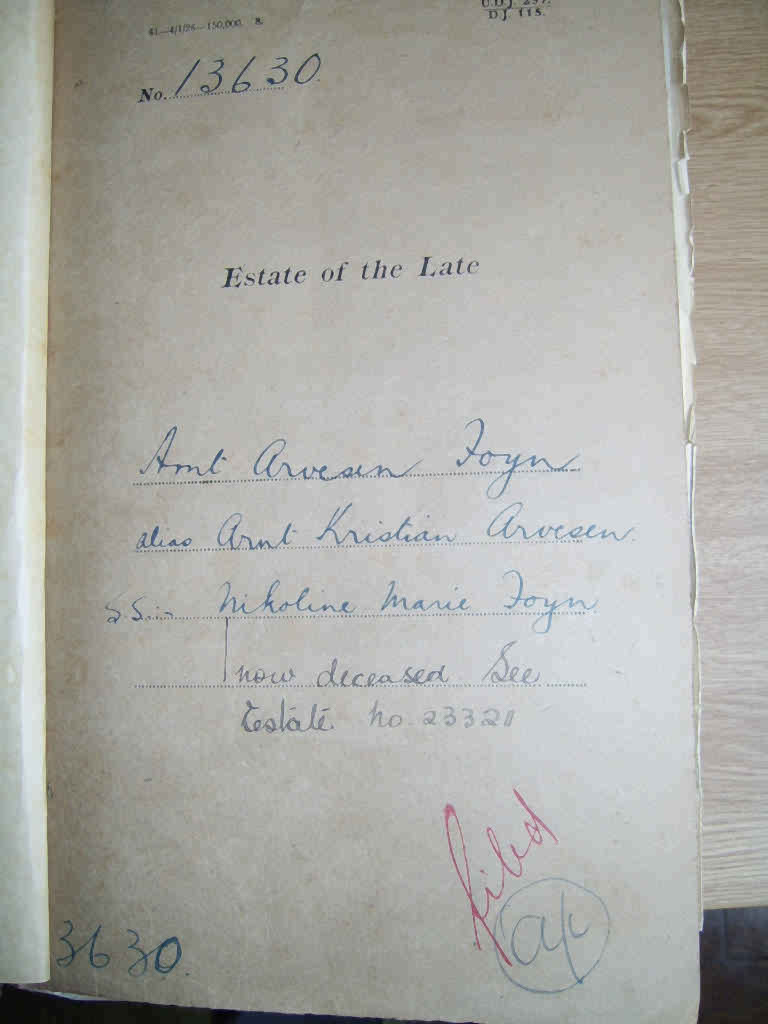 61.—4/1/26—150,000. 8.
U.D.J. 297.
D.J. 115.
No. 13630.
Estate of the Late
Arnt Arvesen Foyn
alias Arnt Kristian Arvesen.
S.S.:- Nikoline Marie Foyn
now deceased. See
Estate No. 23321
filed
3630.